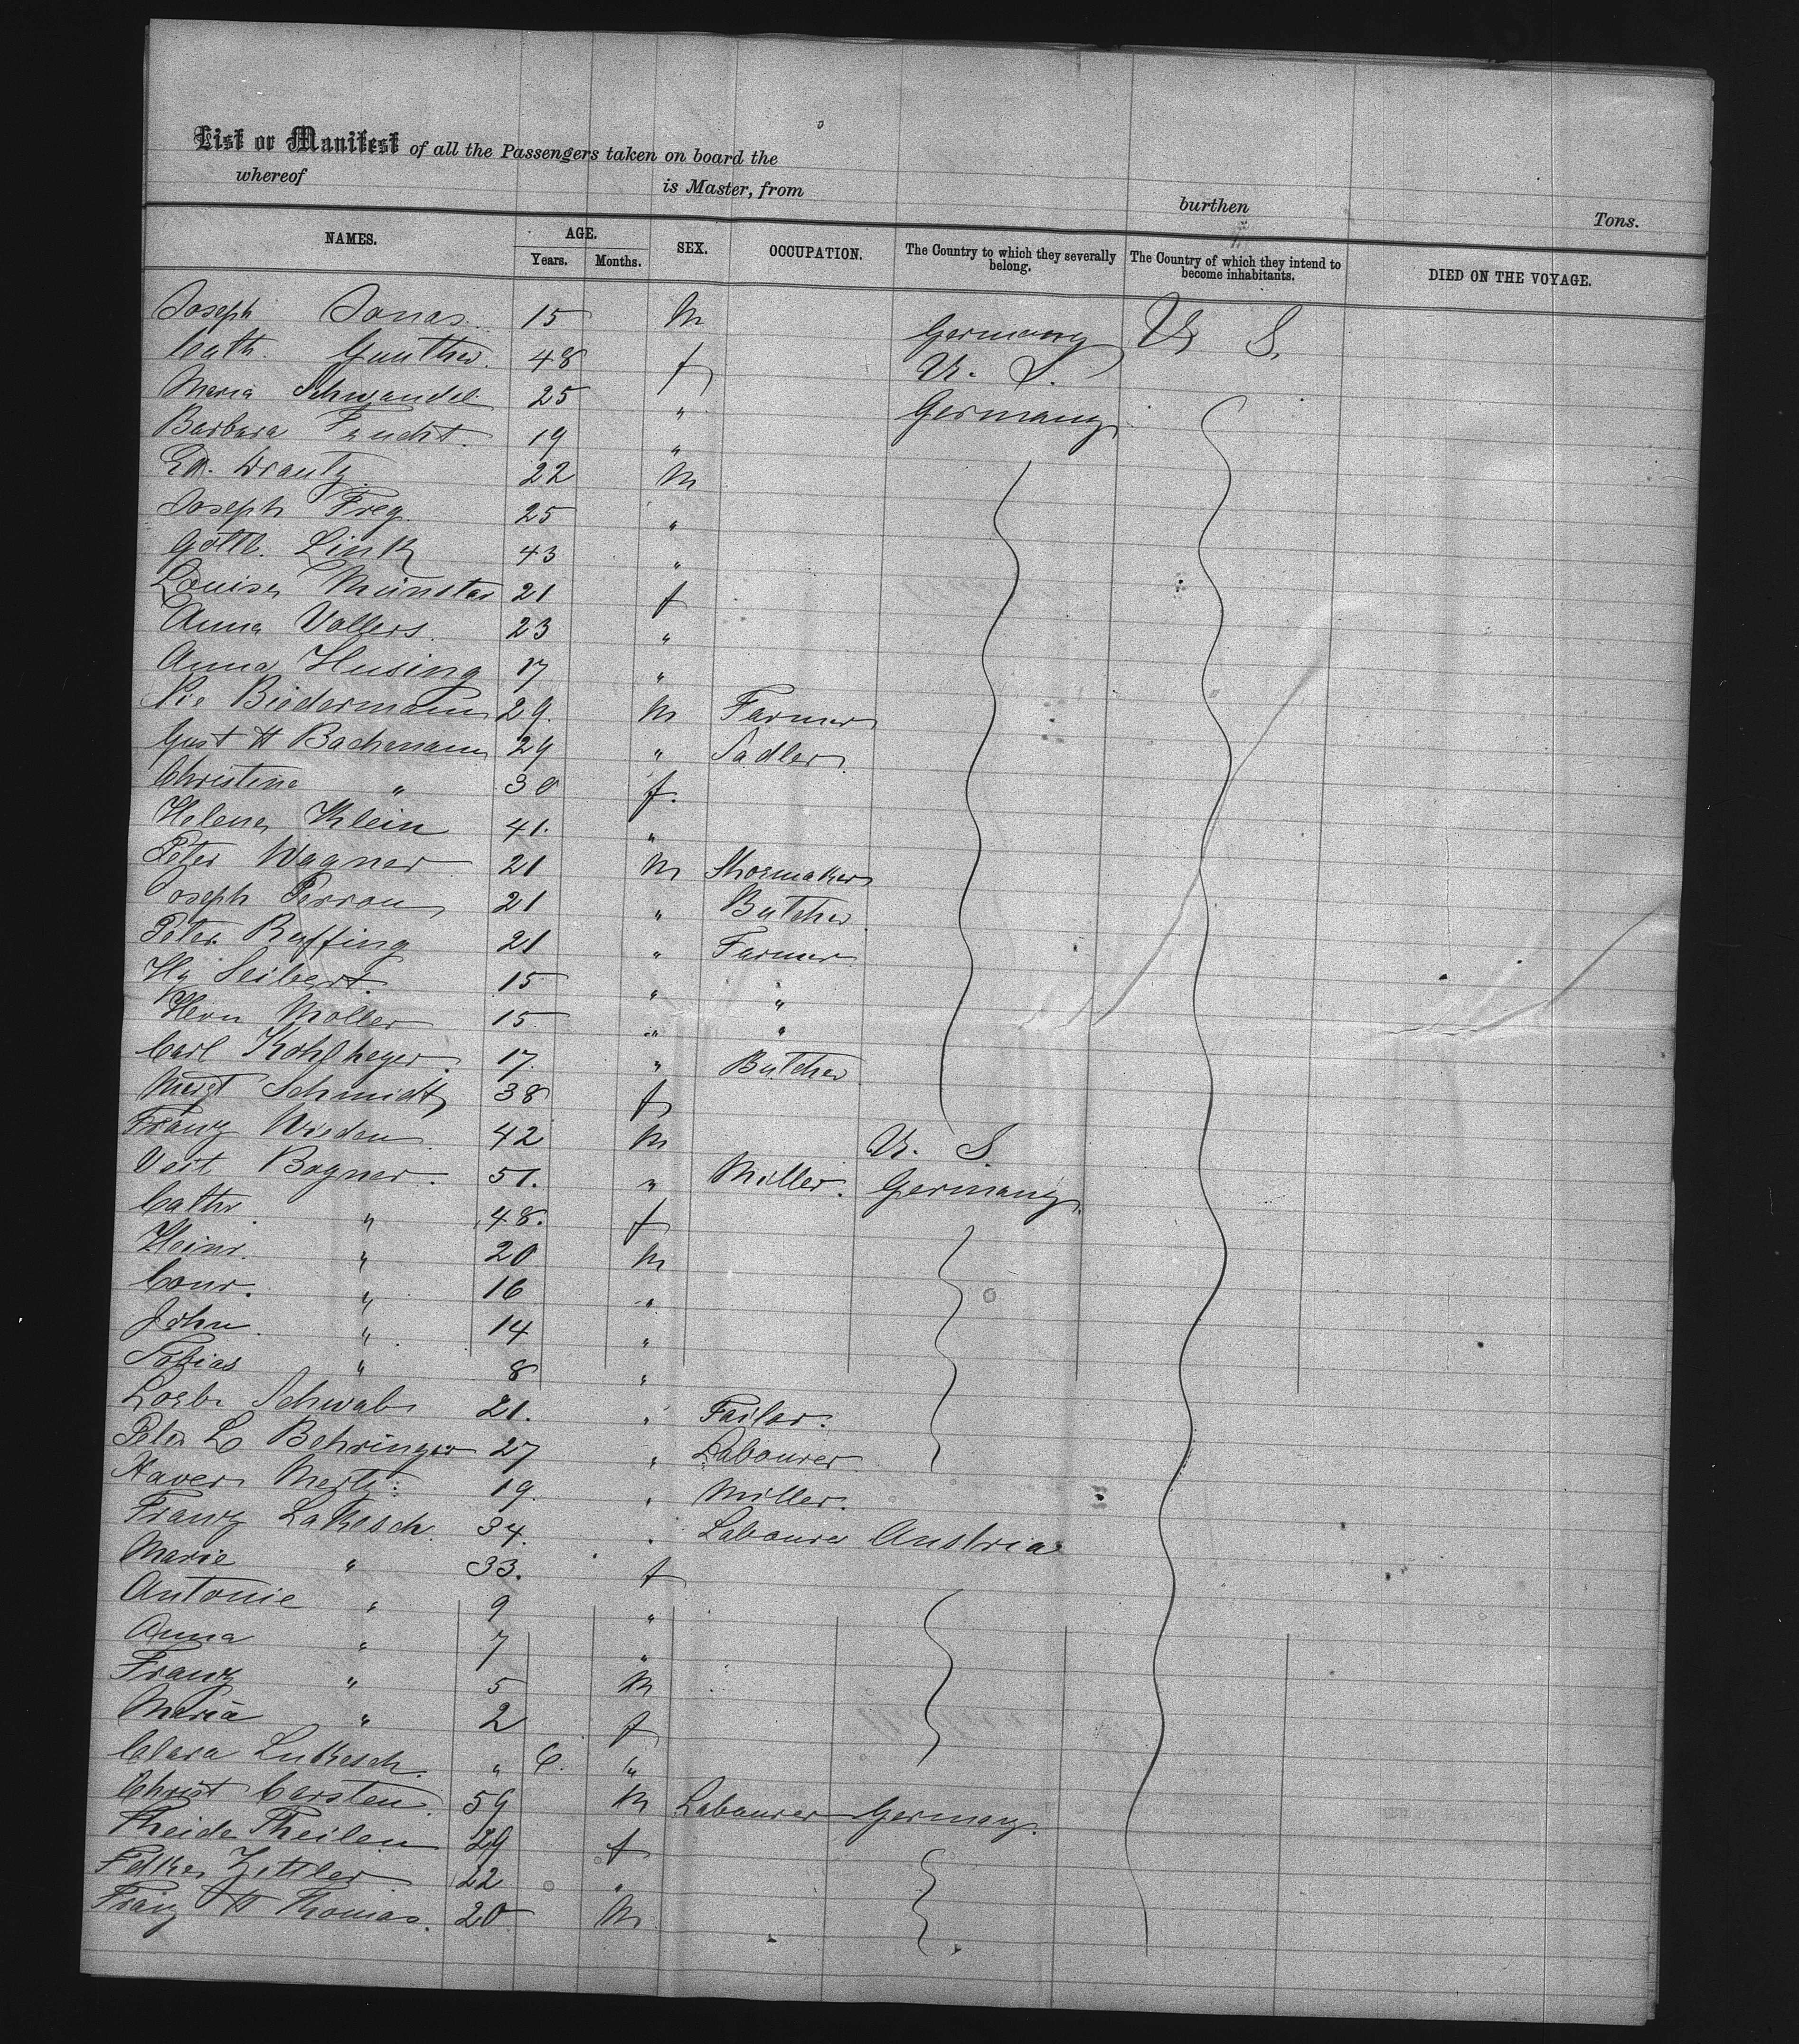 List or Manifest of all the Passengers taken on board the
whereof is Master, from burthen Tons.
NAMES. AGE. SEX. OCCUPATION. The Country to which they severally belong. The Country of which they intend to become inhabitants. DIED ON THE VOYAGE.
Years. Months.
Joseph Jonas. 15 M Germany U S.
Cath. Gunther. 48 f U. S.
Maria Schwandel 25 " Germany
Barbara Feucht. 19 "
Ed. Drautz 22 M
Joseph Frey. 25 "
Gottl. Link 43 "
Louise Münster 21 f
Anna Vollers. 23 "
Anna Husing 17 "
Nic Biedermann 29. M Farmer
Gust H Bachmann 29 " Sadler
Christine " 30 f.
Helena Klein 41. "
Peter Wagner 21 M Shoemaker
Joseph Perron 21 " Butcher
Peter Ruffing 21 " Farmer
Hy Seibert. 15 " "
Herm Moller 15 " "
Carl Kohlheyer. 17. " Butcher
Margt Schmidt 38 f
Franz Wieden 42 M U. S.
Veit Bogner. 51. " Miller. Germany.
Cathr. " 48. f
Heinr. " 20 M
Conr. " 16 "
John. " 14 "
Tobias " 8 "
Schwab 21. " Tailor.
Peter L Behringer 27 " Labourer
Xaver Mertz. 19. " Miller.
Franz Lukesch. 34. " Labourer Austria
Marie " 33. f
Antonie " 9 "
Anna " 7 "
Franz " 5 M
Maria " 2 f
Clara Lukesch. " 6. "
Christ Carsten. 59 M Labourer Germany.
Theilen 29 f
Zettler 22 "
Franz H Thomas. 20 M